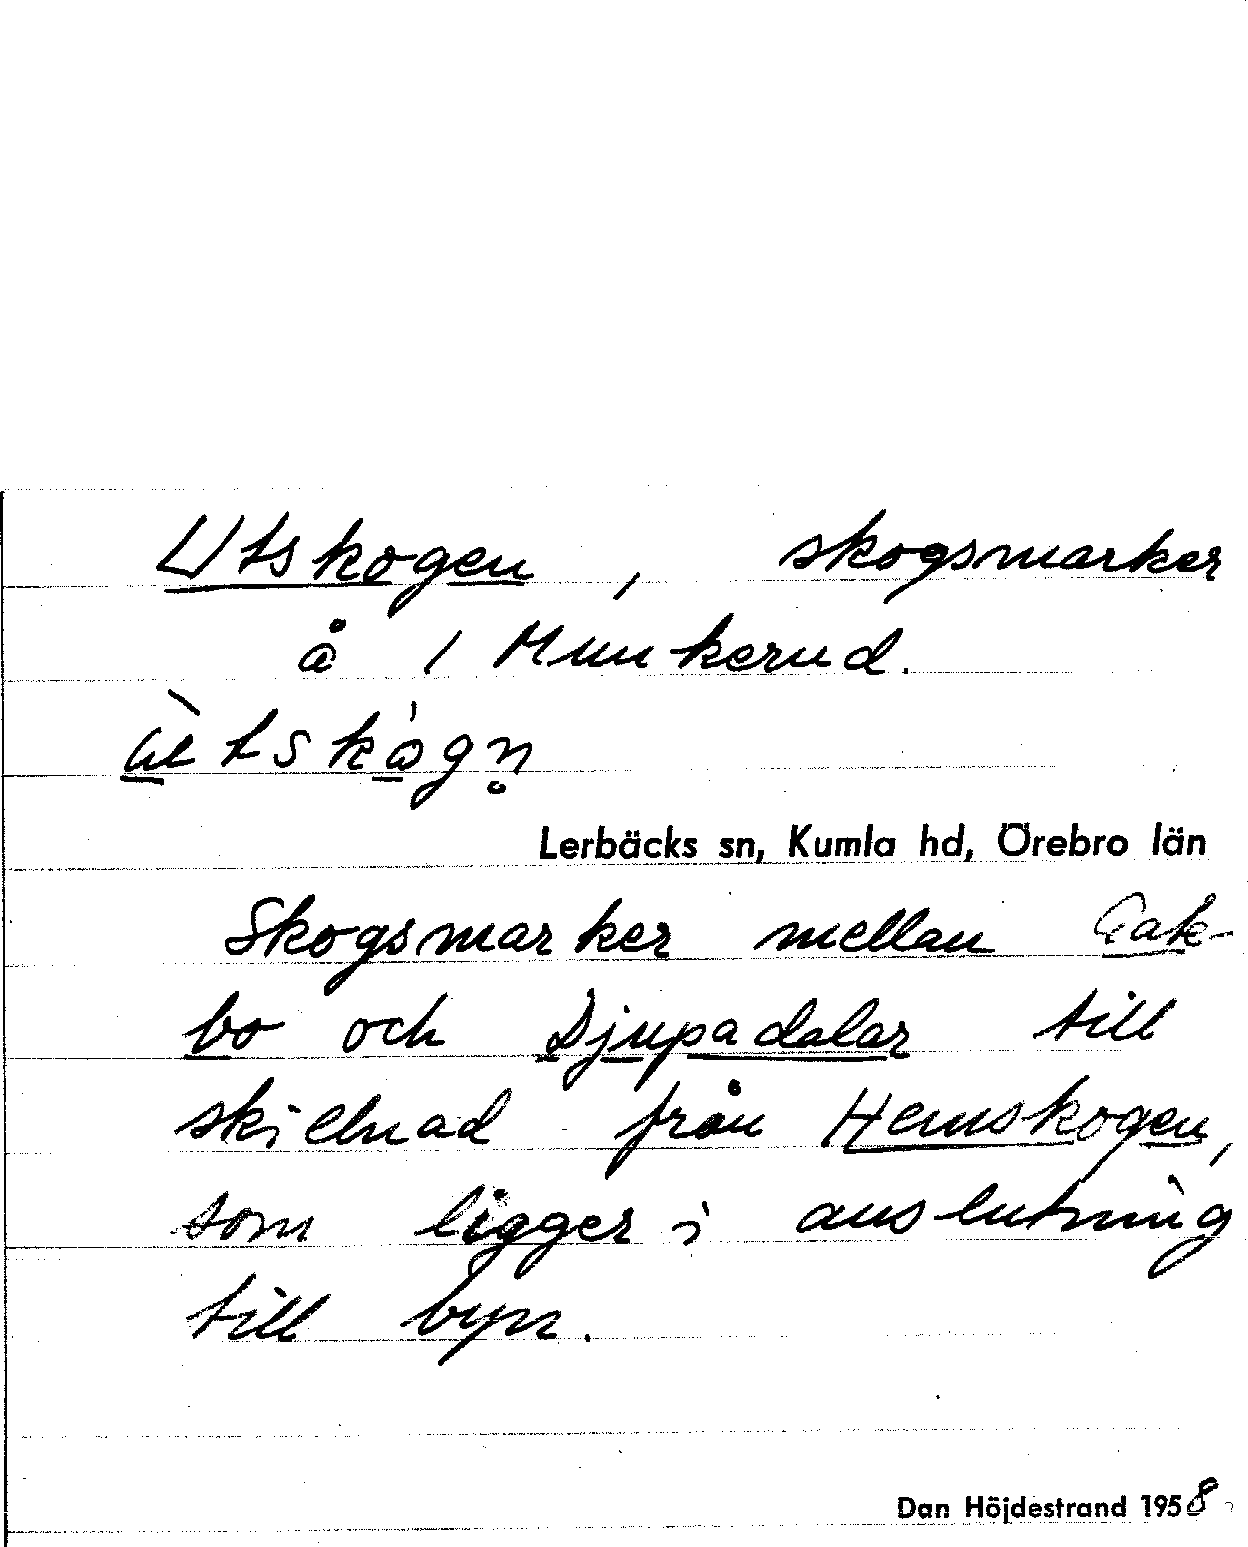 Utskogen, skogsmarker
å 1 Munkerud.
Lerbäcks sn, Kumla hd, Örebro län
Skogsmarker mellan
bo och Djupadalar till
skillnad från Hemskogen,
som ligger i anslutning
till byn.
Dan Höjdestrand 1958